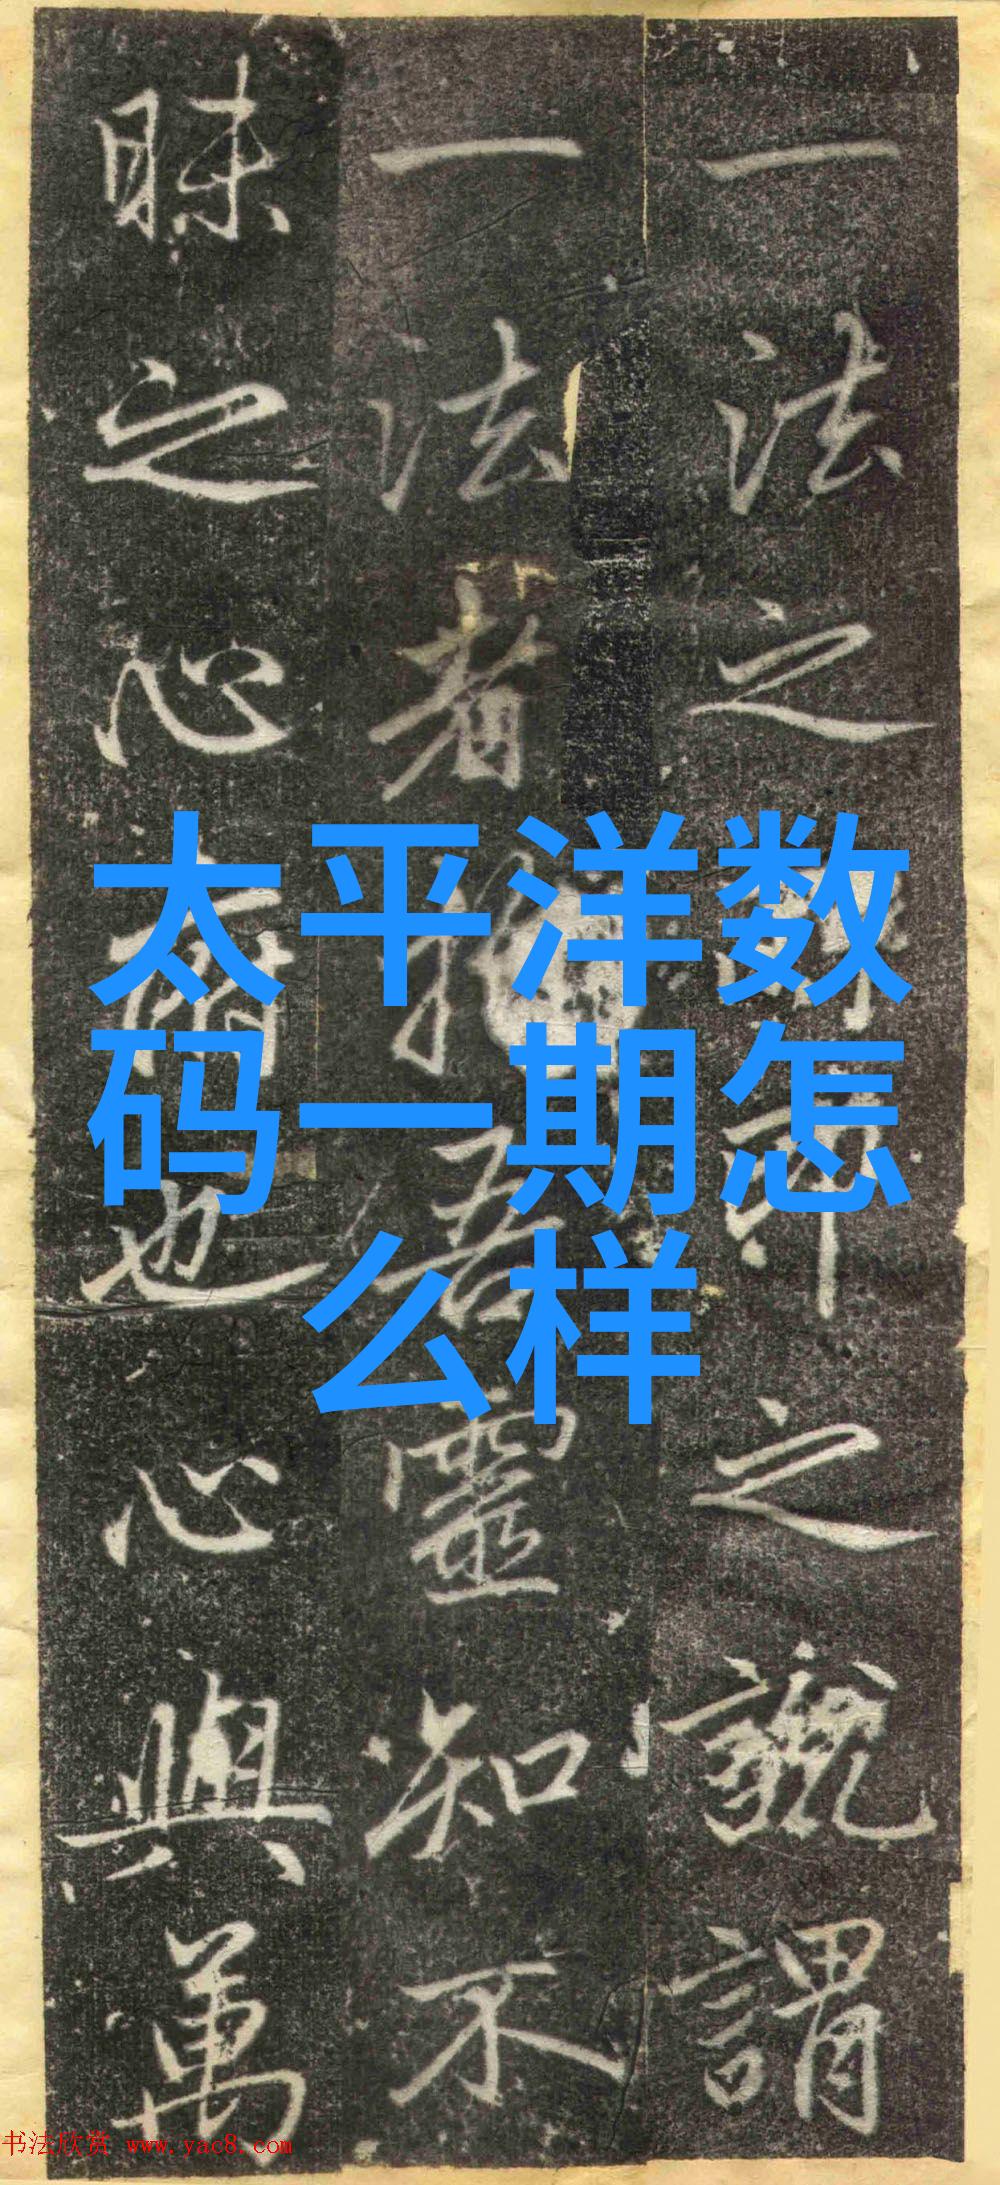 一法之印之說謂
一法者吾靈知不
昧之心爾也心與萬
太平洋数
码一期怎
么样
书法欣赏 www.yac8.com